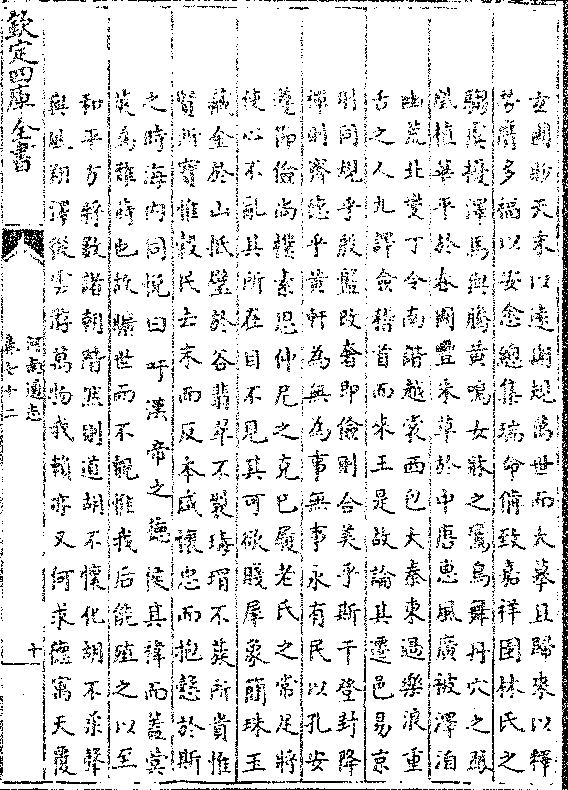 玄圃眇天末以遠期規萬世而大摹且歸來以釋
勞膺多福以安悆總集瑞命備致嘉祥圉林氏之
騶虞擾澤馬與騰黃鳴女牀之鸞鳥舞丹穴之鳳
凰植華平於春圃豐朱草於中唐惠風廣被澤洎
幽荒北燮丁令南諧越裳西包大秦東過樂浪重
舌之人九譯僉稽首而來王是故論其遷邑易京
則同規乎殷盤改奢即儉則合美乎斯干登封降
禪則齊德乎黃軒為無為事無事永有民以孔安
遵節儉尚樸素思仲尼之克己履老氏之常足將
使心不亂其所在目不見其可欲賤犀象簡珠玉
藏金於山抵璧於谷翡翠不裂瑇瑁不蔟所貴惟
賢所寶惟穀民去末而反本咸懷忠而抱慤於斯
之時海內同悅曰吁漢帝之德侯其禕而蓋蓂
莢為難蒔也故曠世而不覿惟我后能殖之以至
和平方將數諸朝階然則道胡不懷化胡不柔聲
與風翔澤從雲游萬物我賴亦又何求德寓天覆
欽定四庫全書
河南通志
卷七十二
十